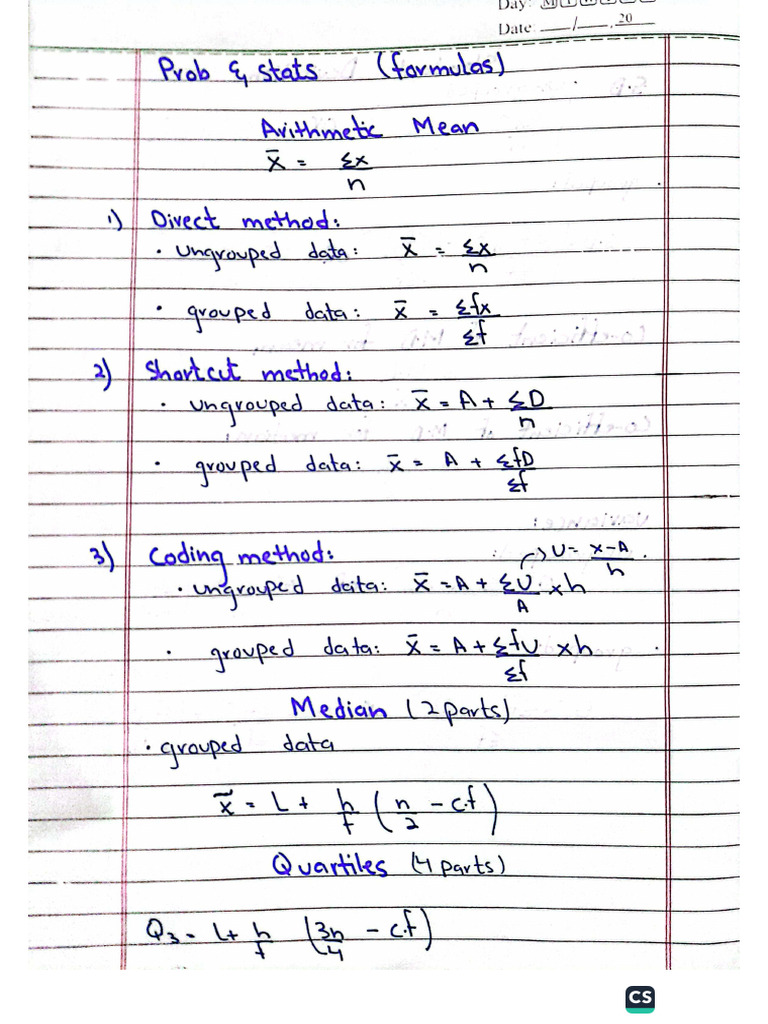 Day: M T
Date: __/__, 20__
Prob & stats (formulas)
Arithmetic Mean
x̄ = Σx/n
1) Direct method:
· ungrouped data: x̄ = Σx/n
· grouped data: x̄ = Σfx/Σf
2) Shortcut method:
· ungrouped data: x̄ = A + ΣD/n
· grouped data: x̄ = A + ΣfD/Σf
3) Coding method: → U = x-A/h .
· ungrouped data: x̄ = A + ΣU/A × h
· grouped data: x̄ = A + ΣfU/Σf × h
Median (2 parts)
· grouped data
x̃ = L + h/f (n/2 - c.f)
Quartiles (4 parts)
Q₃ = L + h/f (3n/4 - c.f)
CS